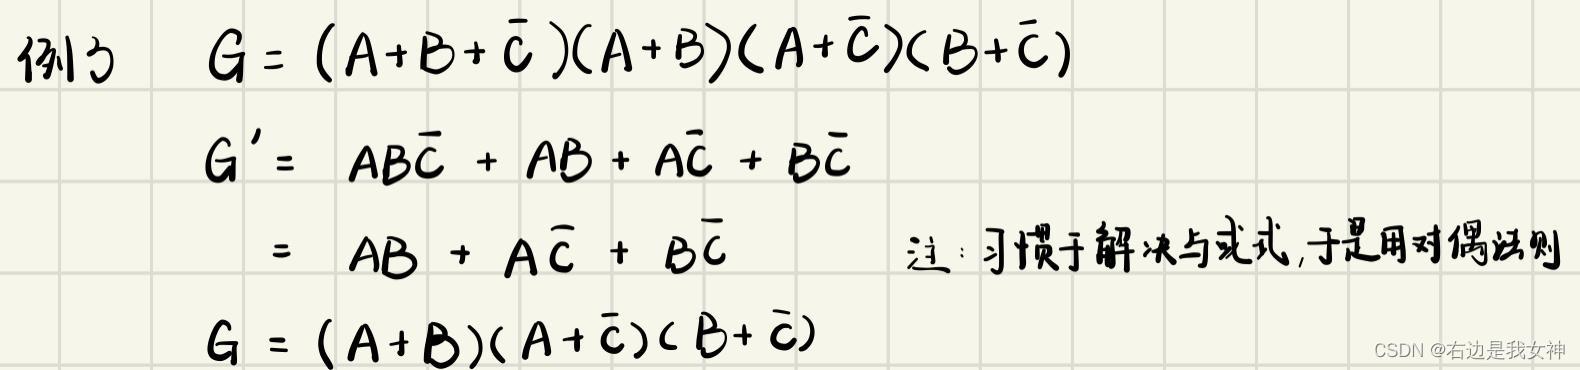 例3 G = (A+B+C̄)(A+B)(A+C̄)(B+C̄)
G' = ABC̄ + AB + AC̄ + BC̄
= AB + AC̄ + BC̄ 注:习惯于解决与或式,于是用对偶法则
G = (A+B)(A+C̄)(B+C̄)
CSDN @右边是我女神